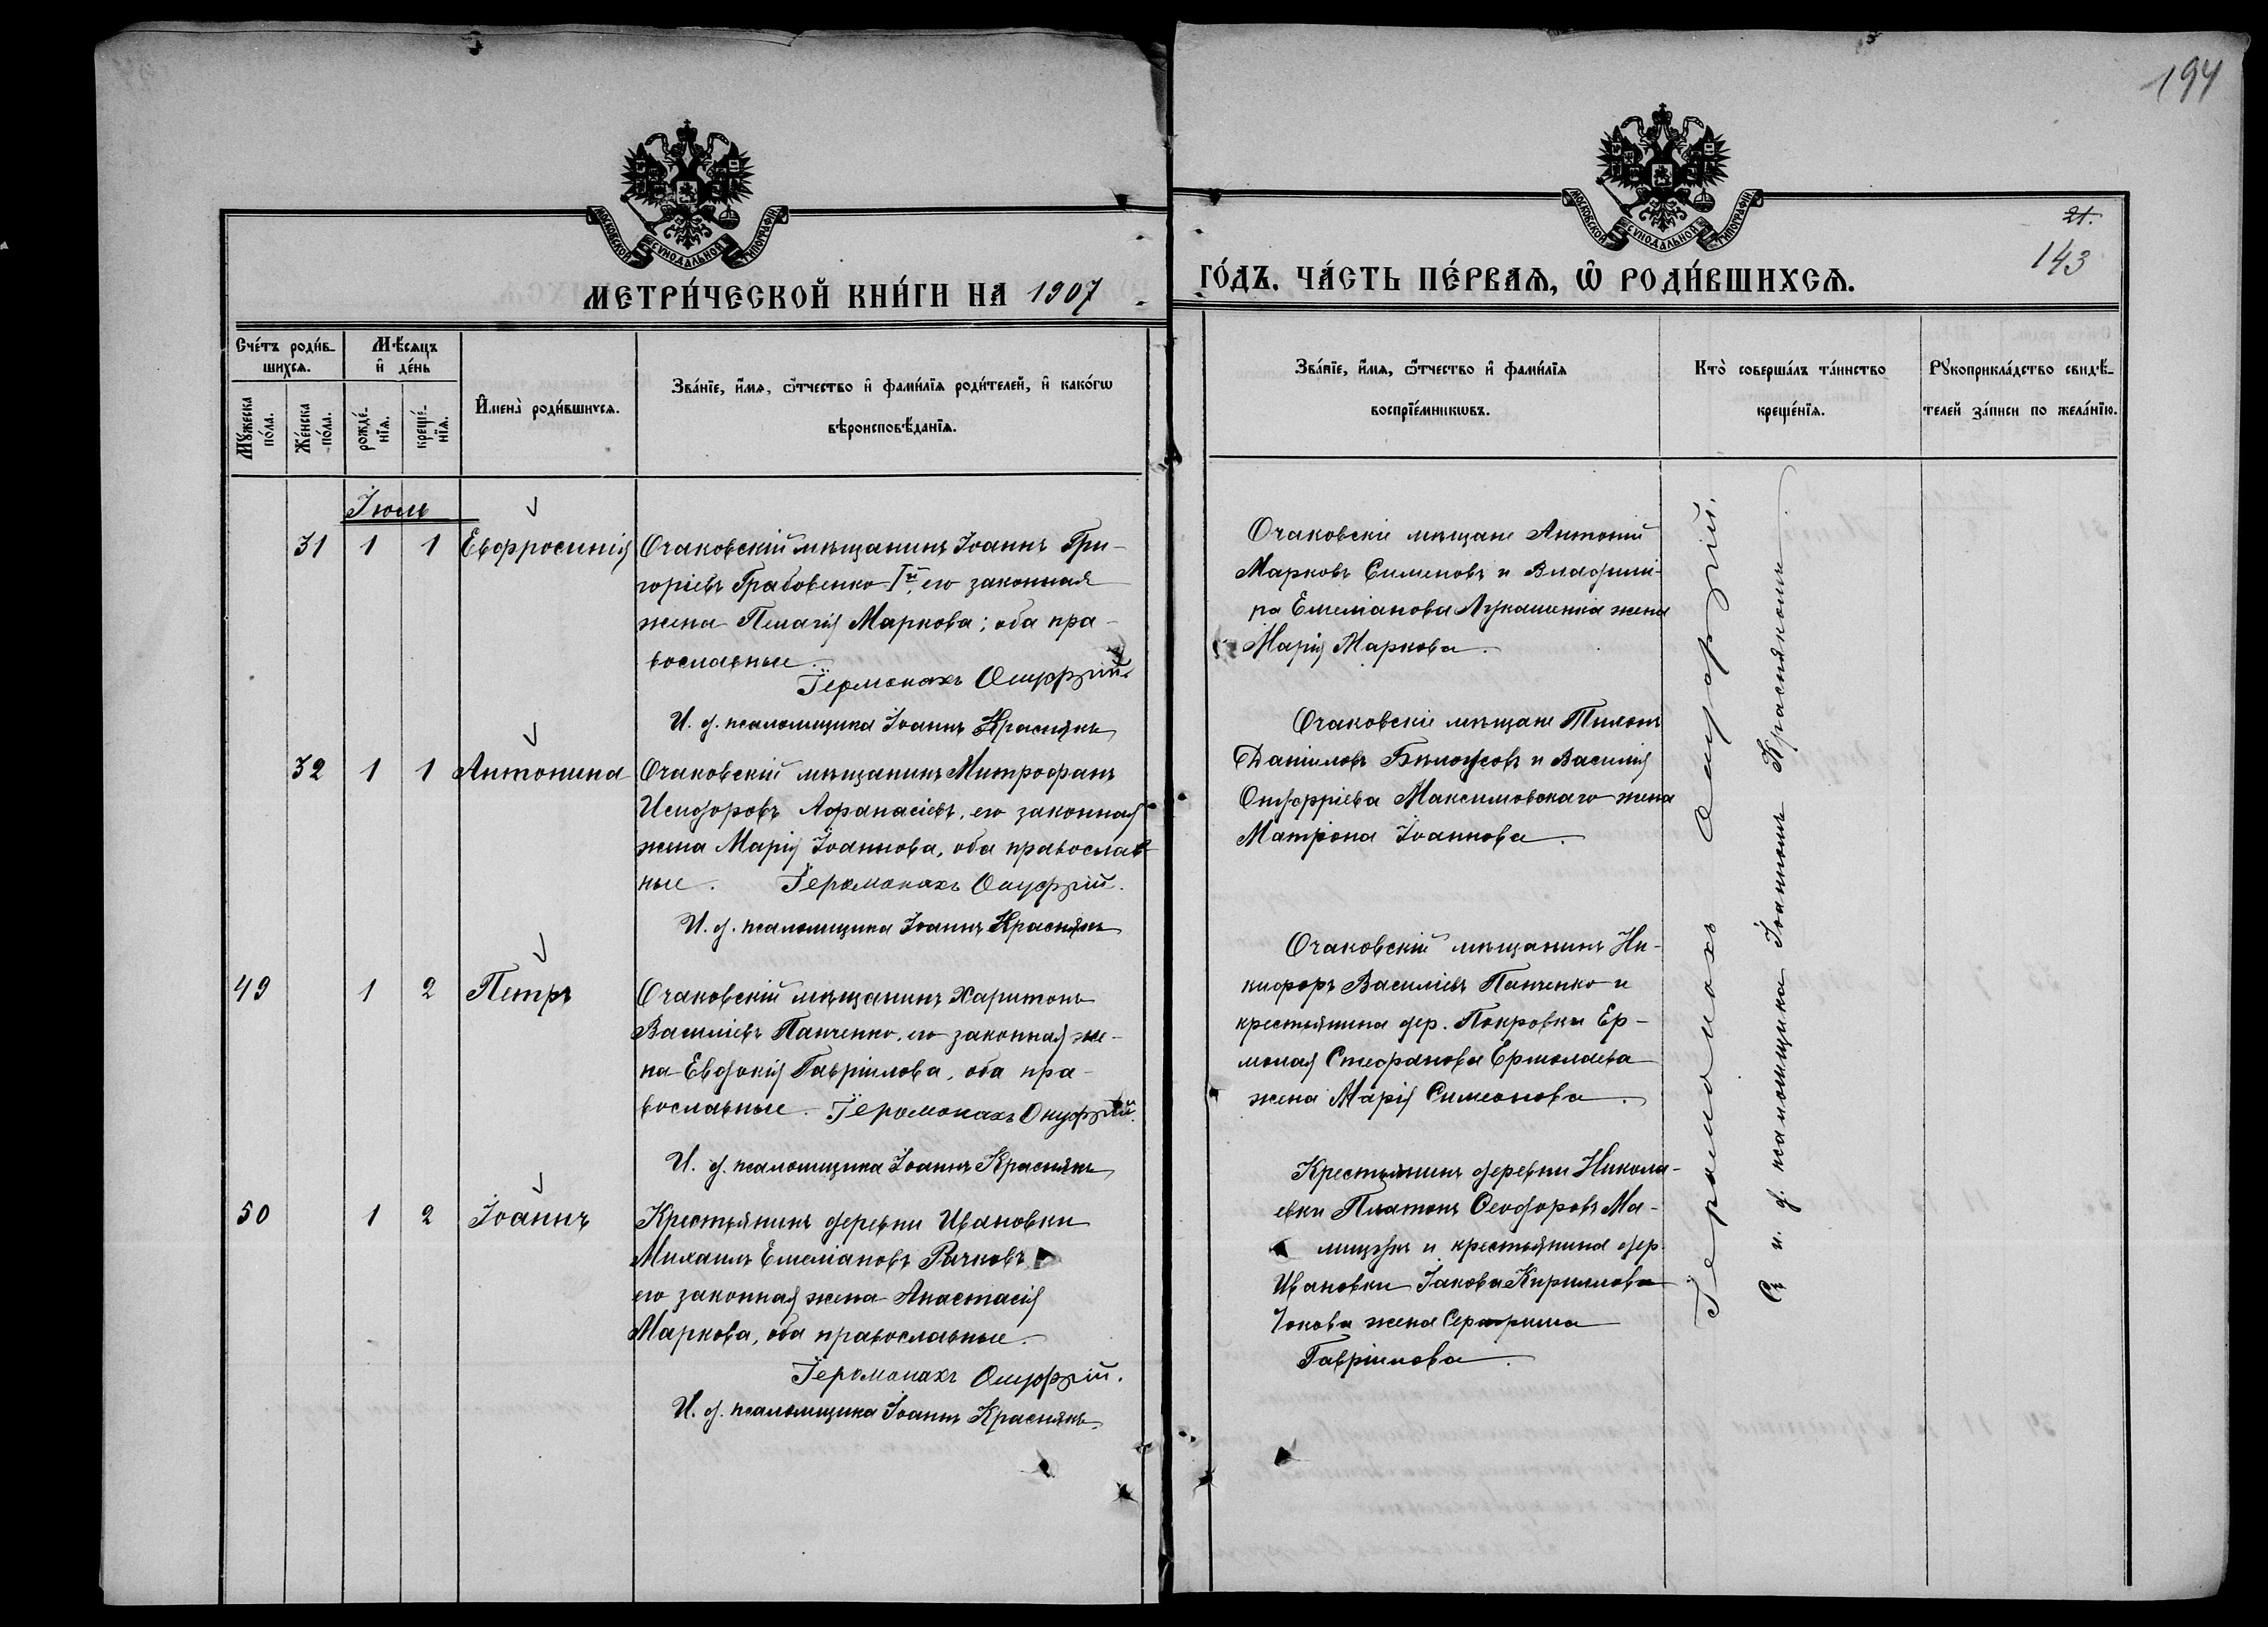 194
МОСКОВСКОЙ СѴНОДАЛЬНОЙ ТИПОГРАФІИ
МОСКОВСКОЙ СѴНОДАЛЬНОЙ ТИПОГРАФІИ
21.
143
МЕТРИ́ЧЕСКОЙ КНИ́ГИ НА 1907
ГО́ДЪ. ЧА́СТЬ ПЕ́РВАЯ, Ѡ҆ РОДИ́ВШИХСЯ.
Сче́тъ роди́в-
шихся.
Мѣ́сяцъ
и҆ де́нь
Мꙋ́жеска
по́ла.
Же́нска
по́ла.
рожде́-
нїя.
креще́-
нїя.
И҆мена̀ роди́вшихся.
Зва́нїе, и҆́мя, ѻ҆́тчество и҆ фами́лїя роди́телей, и҆ како́гѡ
вѣроисповѣ́данїя.
Зва́нїе, и҆́мя, ѻ҆́тчество и҆ фами́лїя
воспрїе́мникѡвъ.
Кто̀ соверша́лъ та́инство
креще́нїя.
Рꙋкоприкла́дство свидѣ́-
телей за́писи по жела́нїю.
Іюль
31 1 1 Евфросинія Очаковскій мѣщанинъ Іоаннъ Гри-
горіевъ Грабовенко Iй, его законная
жена Пелагія Маркова; оба пра-
вославные.
Іеромонахъ Онуфрій.
И. д. псаломщика Іоаннъ Краснякъ
Очаковскіе мѣщане Антоній
Марковъ Сименовъ и Владими-
ра Емеліанова Лукашенка жена
Марія Маркова.
32 1 1 Антонина Очаковскій мѣщанинъ Митрофанъ
Исидоровъ Афанасіевъ, его законная
жена Марія Іоаннова, оба православ-
ные. Іеромонахъ Онуфрій.
И. д. псаломщика Іоаннъ Краснякъ
Очаковскіе мѣщане Тихонъ
Даніиловъ Бѣлоусовъ и Василія
Онуфріева Максимовскаго жена
Матрона Іоаннова.
49 1 2 Петръ Очаковскій мѣщанинъ Харитонъ
Василіевъ Панченко, его законная же-
на Евдокія Гавріилова, оба пра-
вославные. Іеромонахъ Онуфрій.
И. д. псаломщика Іоаннъ Краснякъ
Очаковскій мѣщанинъ Ни-
кифоръ Василіевъ Панченко и
крестьянина дер. Покровки Ер-
молая Стефанова Ермолаева
жена Марія Симеонова.
50 1 2 Іоаннъ Крестьянинъ деревни Ивановки
Михаилъ Емеліановъ Рачковъ
его законная жена Анастасія
Маркова, оба православные.
Іеромонахъ Онуфрій.
И. д. псаломщика Іоаннъ Краснякъ
Крестьянинъ деревни Никола-
евки Платонъ Ѳеодоровъ
и крестьянина дер.
Ивановки Іакова Кириллова
жена Серафима
Гавріилова.
Іеромонахъ Онуфрій.
Съ и. д. псаломщика Іоанномъ Краснякомъ